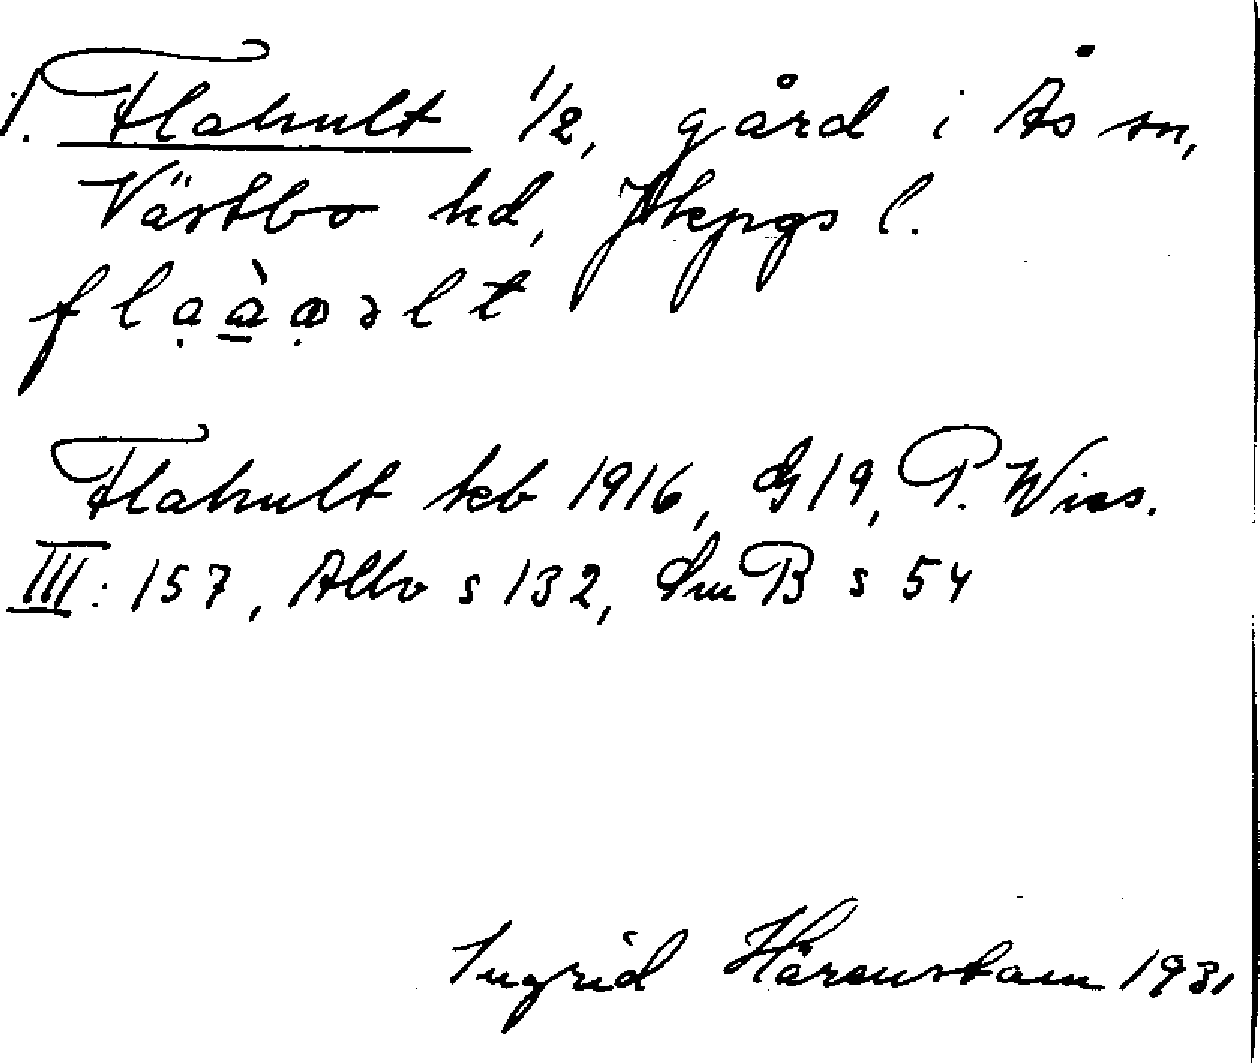 1. Flahult 1/2, gård i Ås sn,
Västbo hd, Jkpgs l.
flạà̱ọəlt
Flahult kb 1916, G19, P. Wies.
III: 157, Allvo s 132, SmB s 54
Ingrid Härenstam 1931